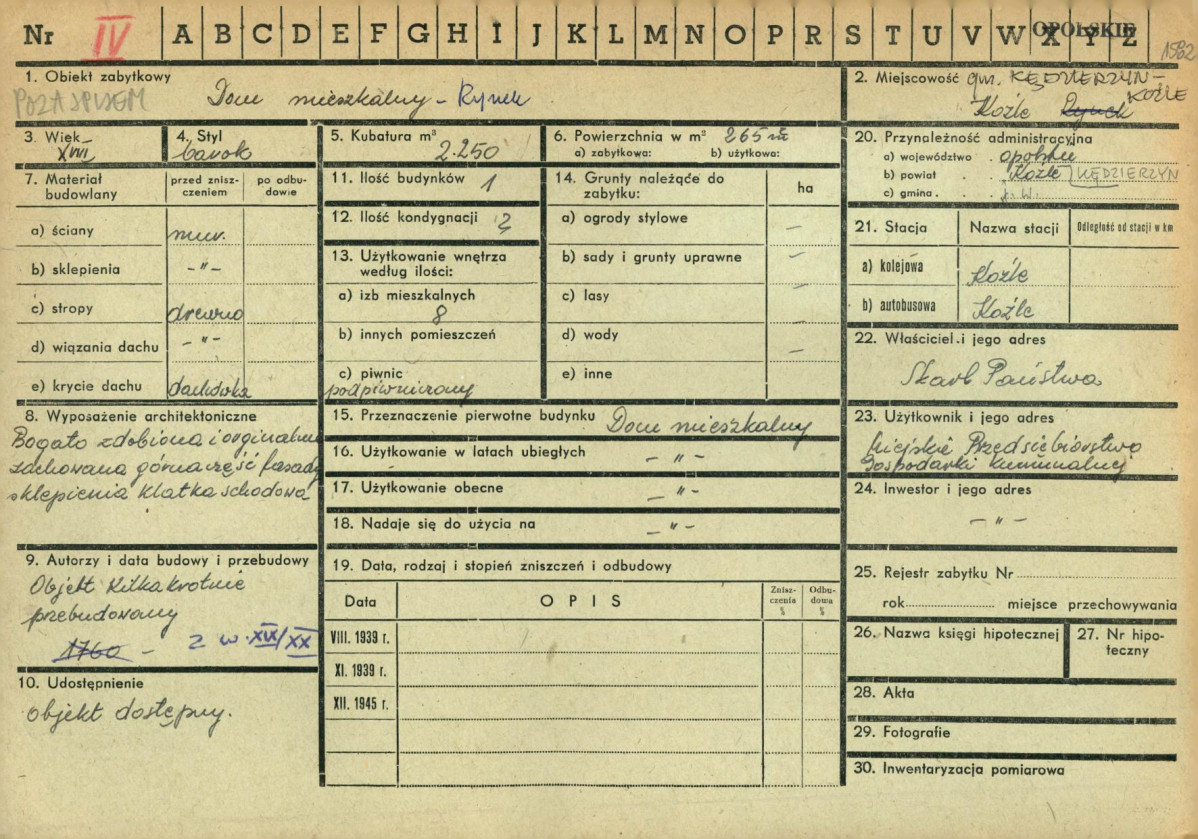 Nr IV A B C D E F G H I J K L M N O P R S T U V W X Y Z
OPOLSKIE
1. Obiekt zabytkowy
POZA SPISEM
Dom mieszkalny - Rynek
2. Miejscowość gm. KĘDZIERZYN-
KOŹLE
Koźle Rynek
3. Wiek
XVIII
4. Styl
barok
5. Kubatura m³
2.250
6. Powierzchnia w m² 265 m²
a) zabytkowa: b) użytkowa:
7. Materiał budowlany
przed zniszczeniem
po odbudowie
a) ściany mur.
b) sklepienia -"-
c) stropy drewno
d) wiązania dachu -"-
e) krycie dachu dachówka
8. Wyposażenie architektoniczne
Bogato zdobiona i orginalnie
zachowana górna część fasady
sklepienia klatka schodowa
9. Autorzy i data budowy i przebudowy
Objekt kilkakrotnie
przebudowany
1760 - z w. XIX/XX
10. Udostępnienie
objekt dostępny.
11. Ilość budynków 1
12. Ilość kondygnacji 2
13. Użytkowanie wnętrza
według ilości:
a) izb mieszkalnych
8
b) innych pomieszczeń
c) piwnic
podpiwniczony
14. Grunty należące do
zabytku:
ha
a) ogrody stylowe —
b) sady i grunty uprawne —
c) lasy —
d) wody —
e) inne
15. Przeznaczenie pierwotne budynku Dom mieszkalny
16. Użytkowanie w latach ubiegłych -"-
17. Użytkowanie obecne -"-
18. Nadaje się do użycia na -"-
19. Data, rodzaj i stopień zniszczeń i odbudowy
Data OPIS Zniszczenia % Odbudowa %
VIII. 1939 r.
XI. 1939 r.
XII. 1945 r.
20. Przynależność administracyjna
a) województwo . opolskie
b) powiat . . Koźle KĘDZIERZYN
c) gmina . .
21. Stacja Nazwa stacji Odległość od stacji w km
a) kolejowa Koźle
b) autobusowa Koźle
22. Właściciel i jego adres
Skarb Państwa
23. Użytkownik i jego adres
Miejskie Przedsiębiorstwo
Gospodarki Komunalnej
24. Inwestor i jego adres
-"-
25. Rejestr zabytku Nr
rok miejsce przechowywania
26. Nazwa księgi hipotecznej
27. Nr hipoteczny
28. Akta
29. Fotografie
30. Inwentaryzacja pomiarowa